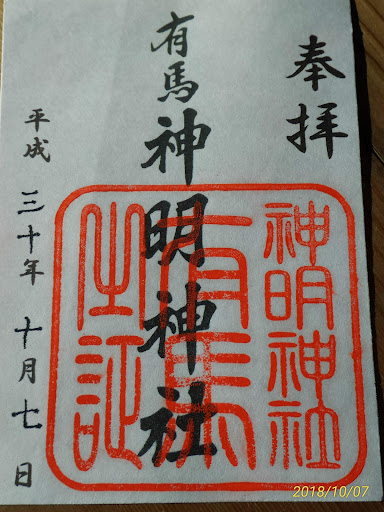 奉拝
有馬神明神社
平成三十年十月七日
神明神社
有馬
之証
2018/10/07